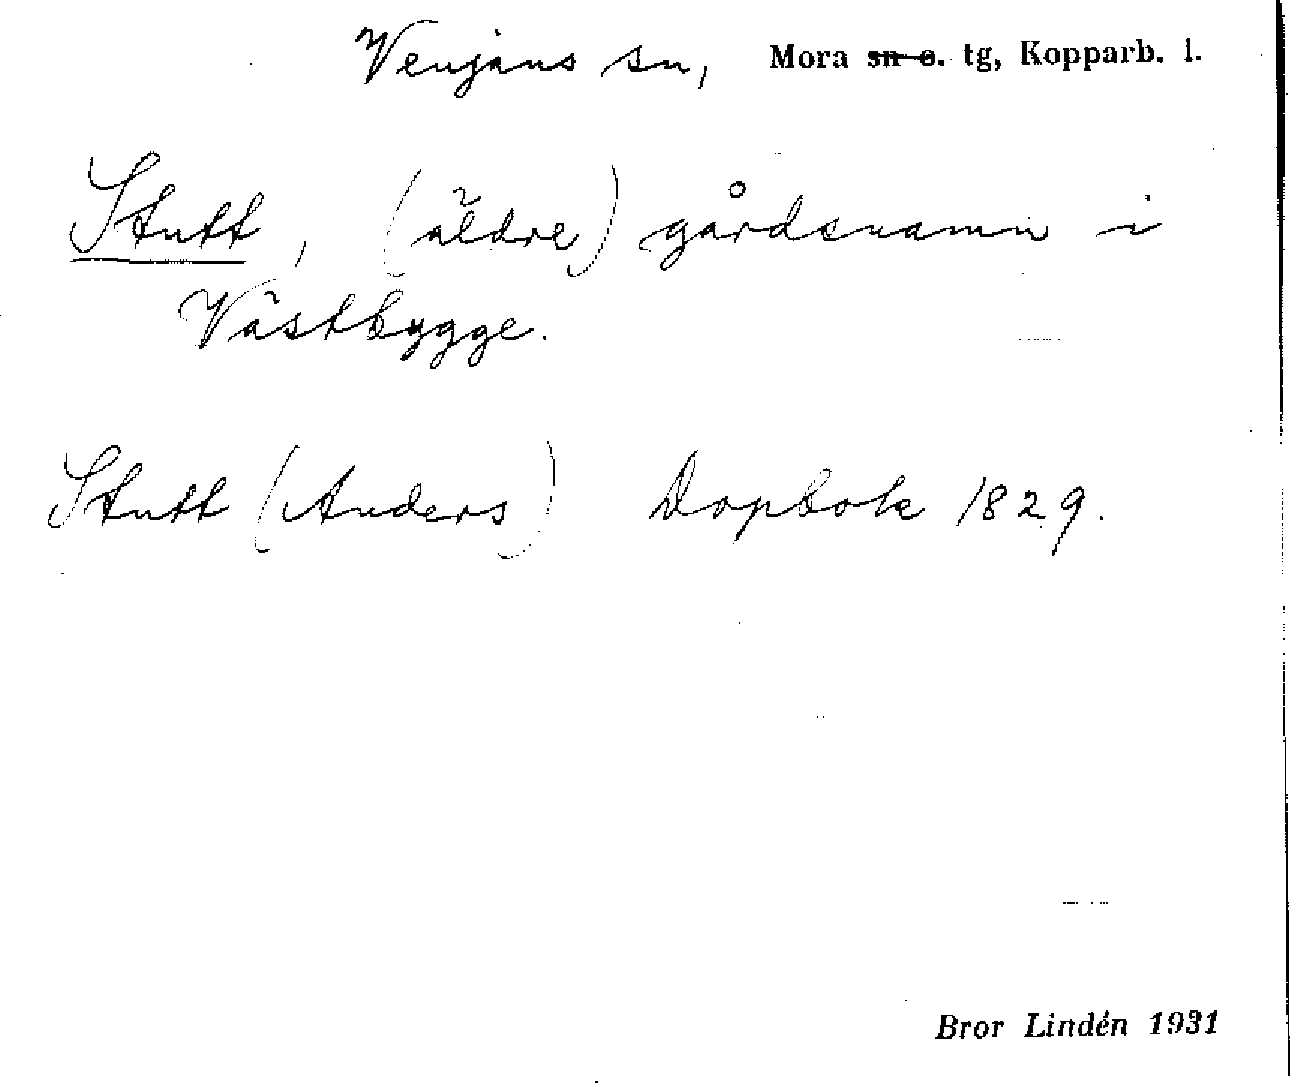 Venjans sn, Mora sn o. tg, Kopparb. l.
Stutt, (äldre) gårdsnamn i
Västbygge.
Stutt (Anders) Dopbok 1829.
Bror Lindén 1931